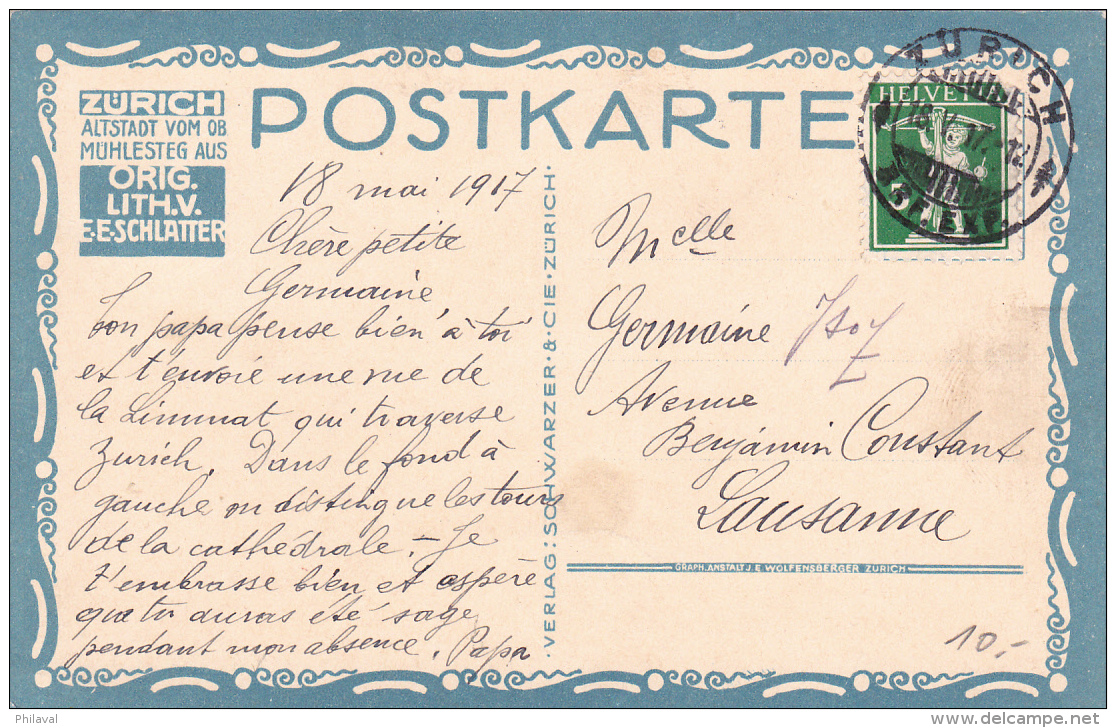 ZÜRICH
ALTSTADT VOM OB.
MÜHLESTEG AUS
ORIG.
LITH.V.
E.E.SCHLATTER
POSTKARTE
HELVE
ZÜRICH
BRF. EXP.
18 mai 1917
Chère petite
Germaine
Ton papa pense bien à toi
et t'envoie une vue de
la Limmat qui traverse
Zurich. Dans le fond à
gauche on distingue les tours
de la cathédrale. - Je
t'embrasse bien et espère
que tu auras été sage
pendant mon absence. Papa
·VERLAG: SCHWARZER·&·CIE·ZÜRICH·
Melle
Germaine
Avenue
Benjamin Constant
Lausanne
GRAPH. ANSTALT J. E. WOLFENSBERGER ZÜRICH
10.-
Philaval
www.delcampe.net